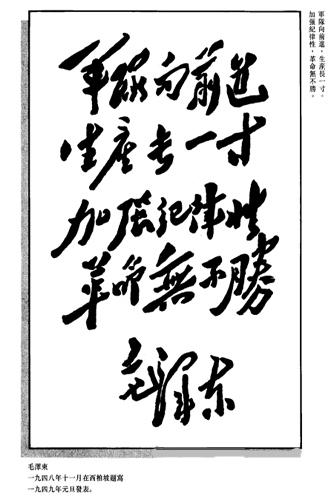 軍隊向前進，生産長一寸。
加強紀律性，革命無不勝。
軍隊向前進
生産長一寸
加强紀律性
革命無不勝
毛澤東
毛澤東
一九四八年十一月在西柏坡題寫
一九四九年元旦發表。